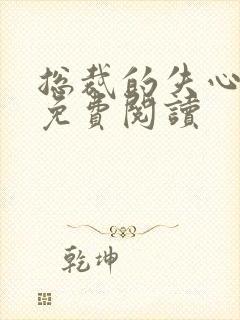 总裁的失心
免費閱讀
乾坤